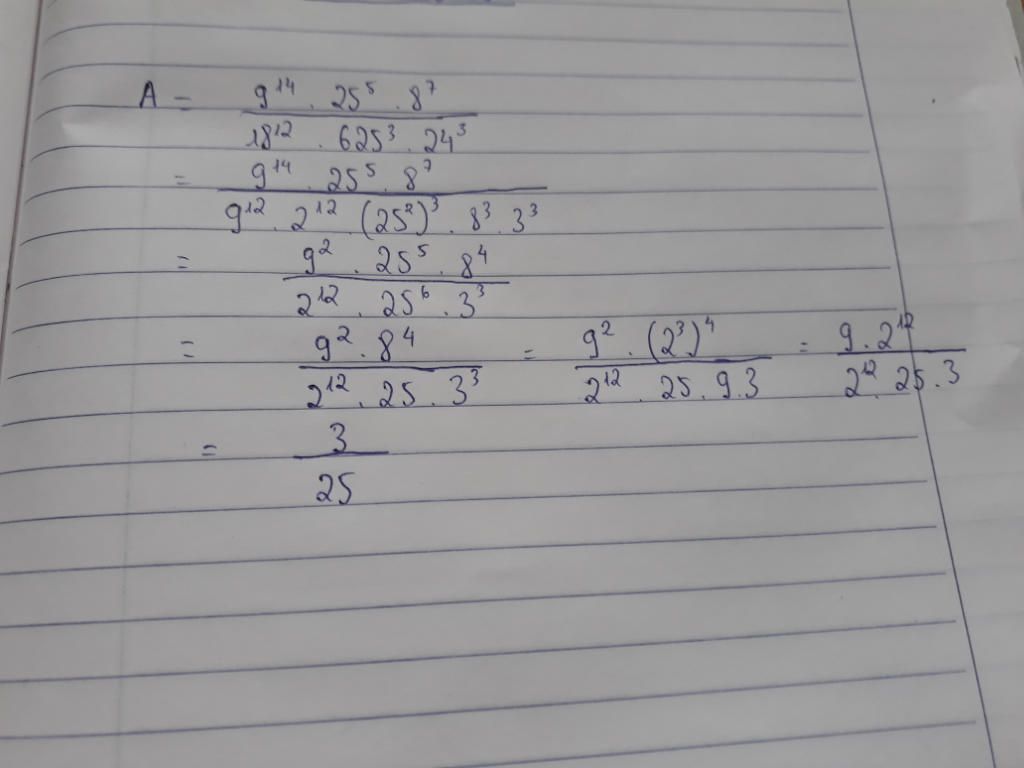 A = 9¹⁴ . 25⁵ . 8⁷
18¹² . 625³ . 24³
= 9¹⁴ . 25⁵ . 8⁷
9¹² . 2¹² . (25²)³ . 8³ . 3³
= 9² . 25⁵ . 8⁴
2¹² . 25⁶ . 3³
= 9² . 8⁴ = 9² . (2³)⁴ = 9 . 2¹²
2¹² . 25 . 3³ 2¹² . 25 . 9.3 2¹² . 25 . 3
= 3
25